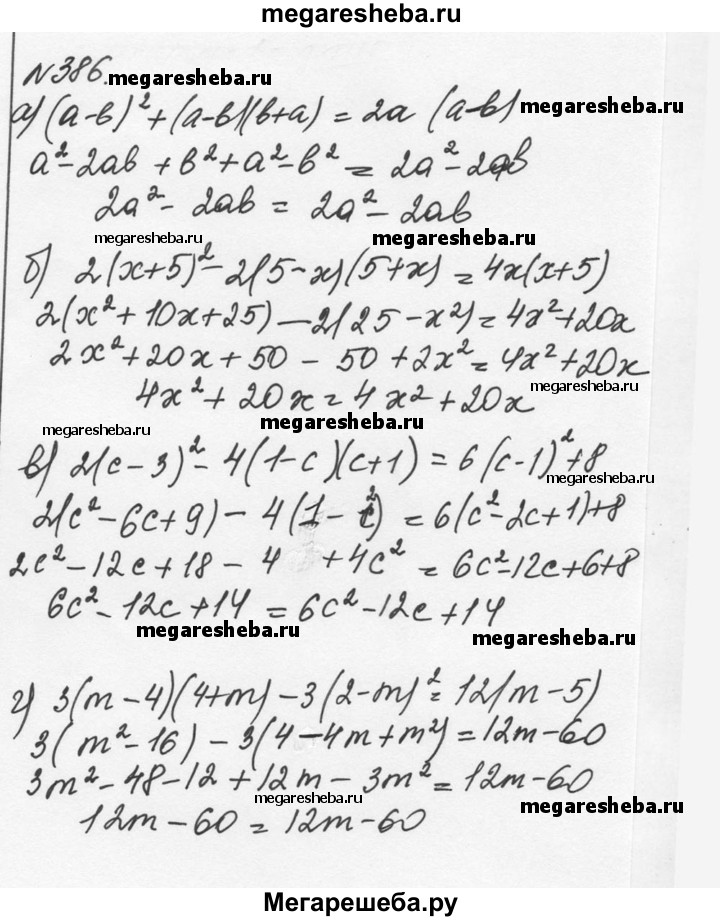 megaresheba.ru
№386. megaresheba.ru
а) (a-b)² + (a-b)(b+a) = 2a (a-b) megaresheba.ru
a² - 2ab + b² + a² - b² = 2a² - 2ab
2a² - 2ab = 2a² - 2ab
megaresheba.ru megaresheba.ru
б) 2(x+5)² - 2(5-x)(5+x) = 4x(x+5)
2(x² + 10x + 25) - 2(25 - x²) = 4x² + 20x
2x² + 20x + 50 - 50 + 2x² = 4x² + 20x
megaresheba.ru
4x² + 20x = 4x² + 20x
megaresheba.ru megaresheba.ru
в) 2(c-3)² - 4(1-c)(c+1) = 6(c-1)² + 8
megaresheba.ru
2(c² - 6c + 9) - 4(1 - c²) = 6(c² - 2c + 1) + 8
2c² - 12c + 18 - 4 + 4c² = 6c² - 12c + 6 + 8
6c² - 12c + 14 = 6c² - 12c + 14
megaresheba.ru megaresheba.ru
г) 3(m-4)(4+m) - 3(2-m)² = 12(m-5)
3(m² - 16) - 3(4 - 4m + m²) = 12m - 60
3m² - 48 - 12 + 12m - 3m² = 12m - 60
megaresheba.ru megaresheba.ru
12m - 60 = 12m - 60
Мегарешеба.ру